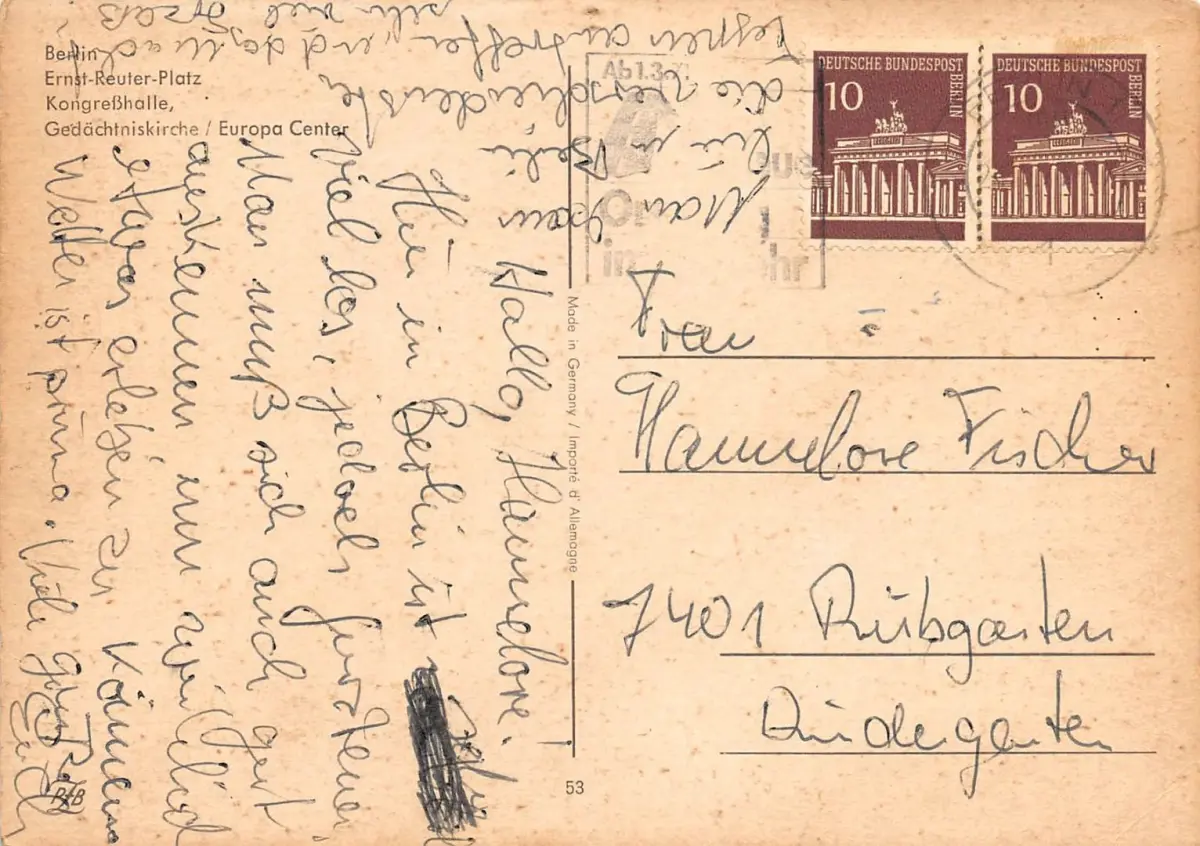 Berlin
Ernst-Reuter-Platz
Kongreßhalle,
Gedächtniskirche / Europa Center
Hallo, Hannelore!
Hier in Berlin ist sehr
viel los, jedoch
Man muß sich auch gut
auskennen um wirklich
etwas erleben zu können
Wetter ist prima. Viele Grüße
Euch
Man kann
hier in Berlin
die verschiedensten
Typen antreffen und das macht
sehr viel Spaß
Made in Germany / Importé d'Allemagne
53
Ab 1.3.
in
DEUTSCHE BUNDESPOST
BERLIN
10
DEUTSCHE BUNDESPOST
BERLIN
10
Frau
Hannelore Fischer
7401 Rübgarten
Kindergarten